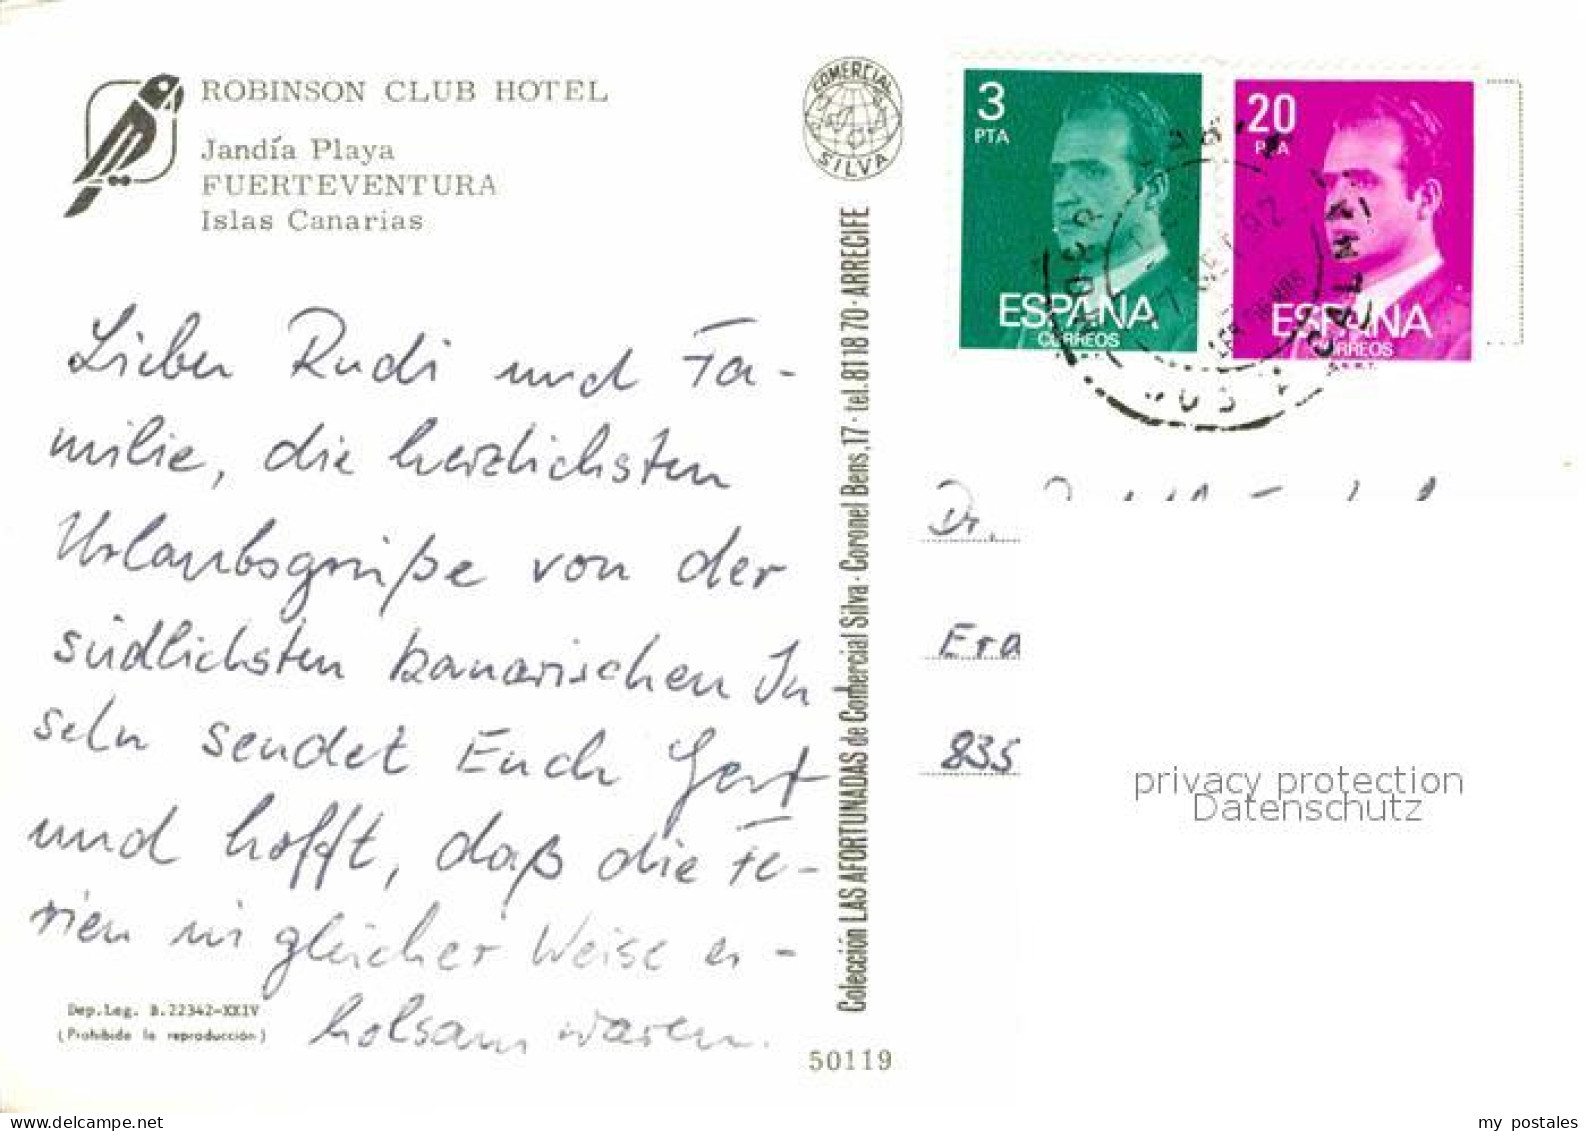 ROBINSON CLUB HOTEL
Jandía Playa
FUERTEVENTURA
Islas Canarias
Lieber Rudi und Fa-
milie, die herzlichsten
Urlaubsgrüße von der
südlichsten kanarischen In-
seln sendet Euch Gert
und hofft, daß die Fe-
rien in gleicher Weise er-
holsam waren.
Dep.Leg. B.22342-XXIV
(Prohibida la reproducción)
COMERCIAL
SILVA
Colección LAS AFORTUNADAS de Comercial Silva · Coronel Bens, 17 · tel. 81 18 70 · ARRECIFE
50119
3
PTA
ESPAÑA
CORREOS
20
PTA
ESPAÑA
CORREOS
F.N.M.T.
Dr.
Era
835
privacy protection
Datenschutz
my postales